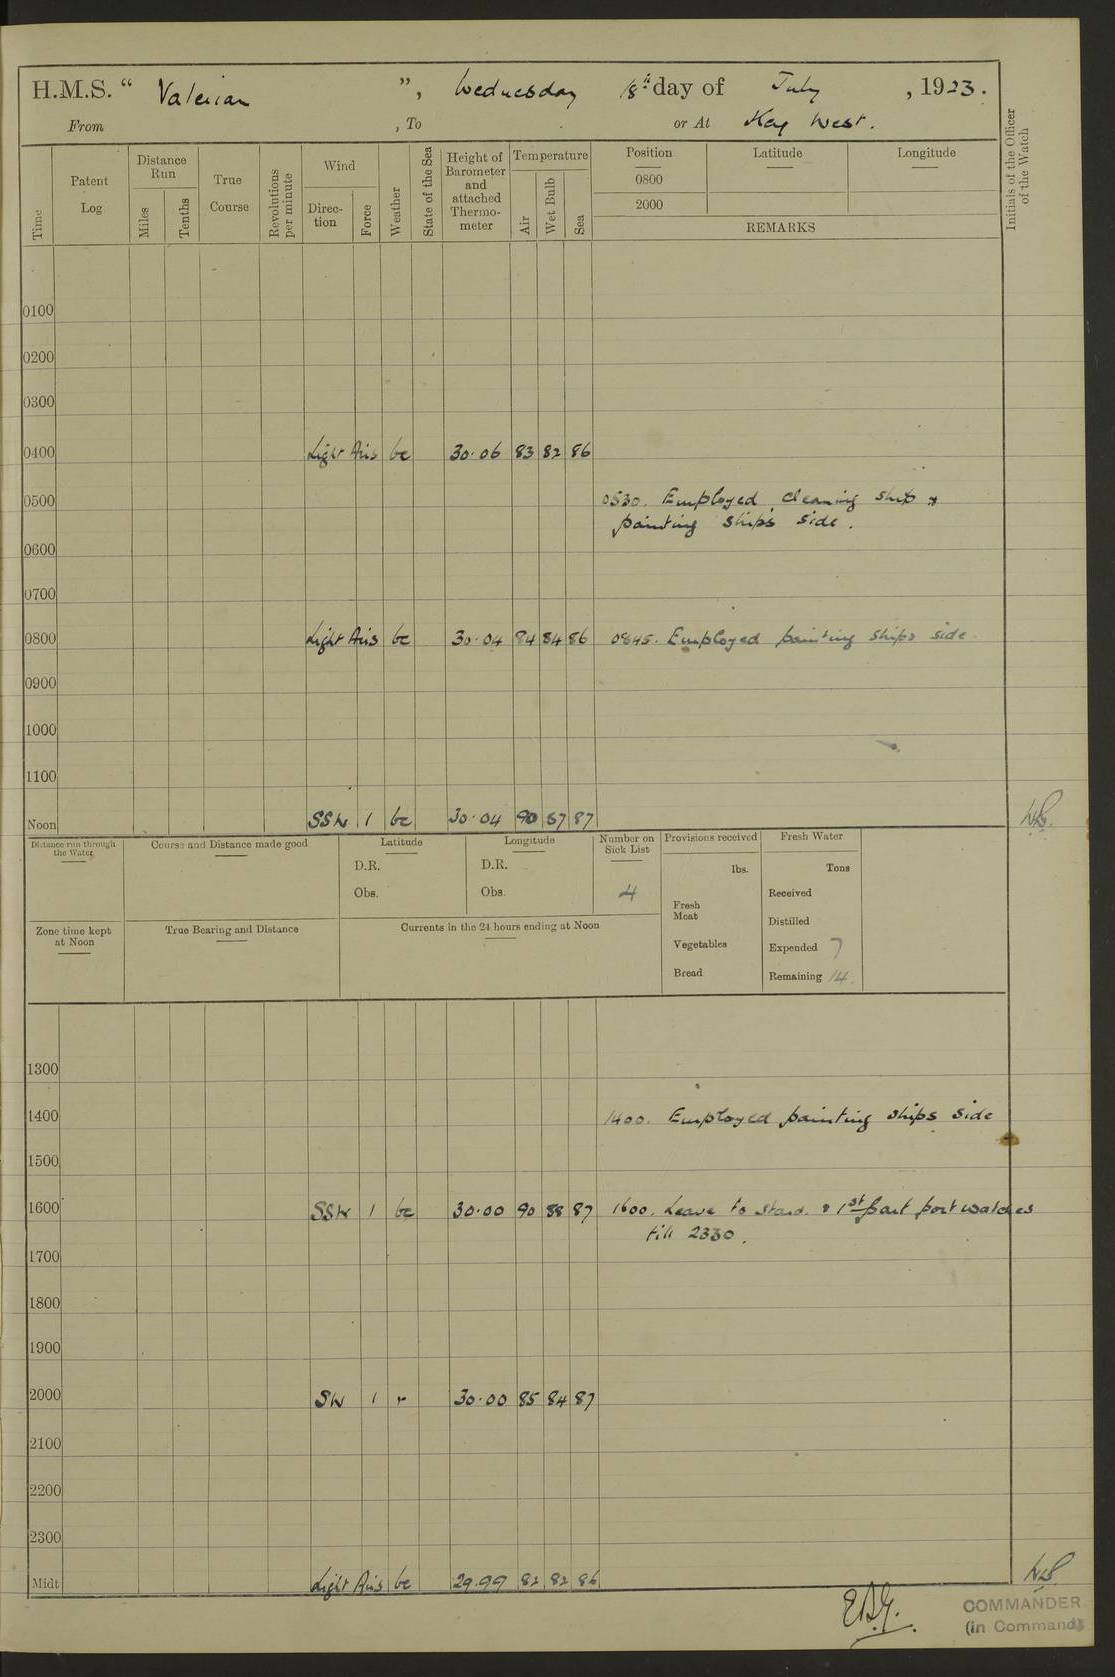 H.M.S. “ Valerian ”, Wednesday 18th day of July, 1923.
From , To or At Key West.
Time
Patent Log
Distance Run
Miles
Tenths
True Course
Revolutions per minute
Wind
Direc-tion
Force
Weather
State of the Sea
Height of Barometer and attached Thermo-meter
Temperature
Air
Wet Bulb
Sea
Position Latitude Longitude
0800
2000
REMARKS
Initials of the Officer of the Watch
0100
0200
0300
0400 Light Airs bc 30.06 83 82 86
0500 0530. Employed cleaning ship &
painting ship's side.
0600
0700
0800 Light Airs bc 30.04 84 84 86 0845. Employed painting ships side
0900
1000
1100
Noon SSW 1 bc 30.04 90 87 87
Distance run through the Water
Course and Distance made good
Latitude
D.R.
Obs.
Longitude
D.R.
Obs.
Number on Sick List
4
Provisions received
lbs.
Fresh Meat
Vegetables
Bread
Fresh Water
Tons
Received
Distilled
Expended 7
Remaining 14.
Zone time kept at Noon
True Bearing and Distance
Currents in the 24 hours ending at Noon
1300
1400 1400. Employed painting ships side
1500
1600 SSW 1 bc 30.00 90 88 87 1600. Leave to Starb. & 1st part port watches
till 2330.
1700
1800
1900
2000 SW 1 r 30.00 85 84 87
2100
2200
2300
Midt Light Airs bc 29.99 82 82 86
COMMANDER
(in Command)